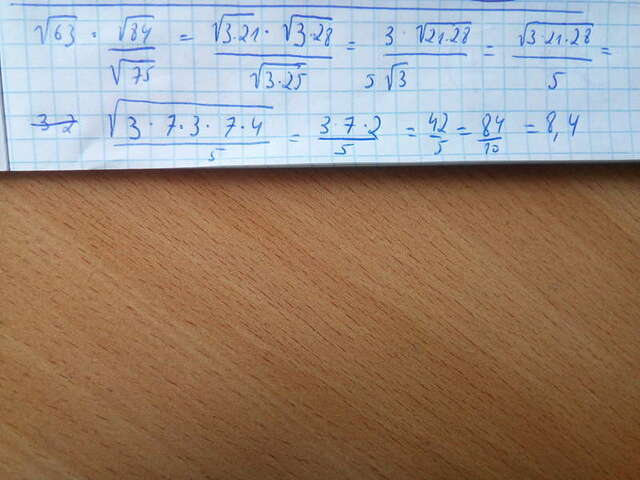 √63 · √84/√75 = √3·21 · √3·28/√3·25 = 3·√21·28/5√3 = √3·21·28/5 =
√3·7·3·7·4/5 = 3·7·2/5 = 42/5 = 84/10 = 8,4